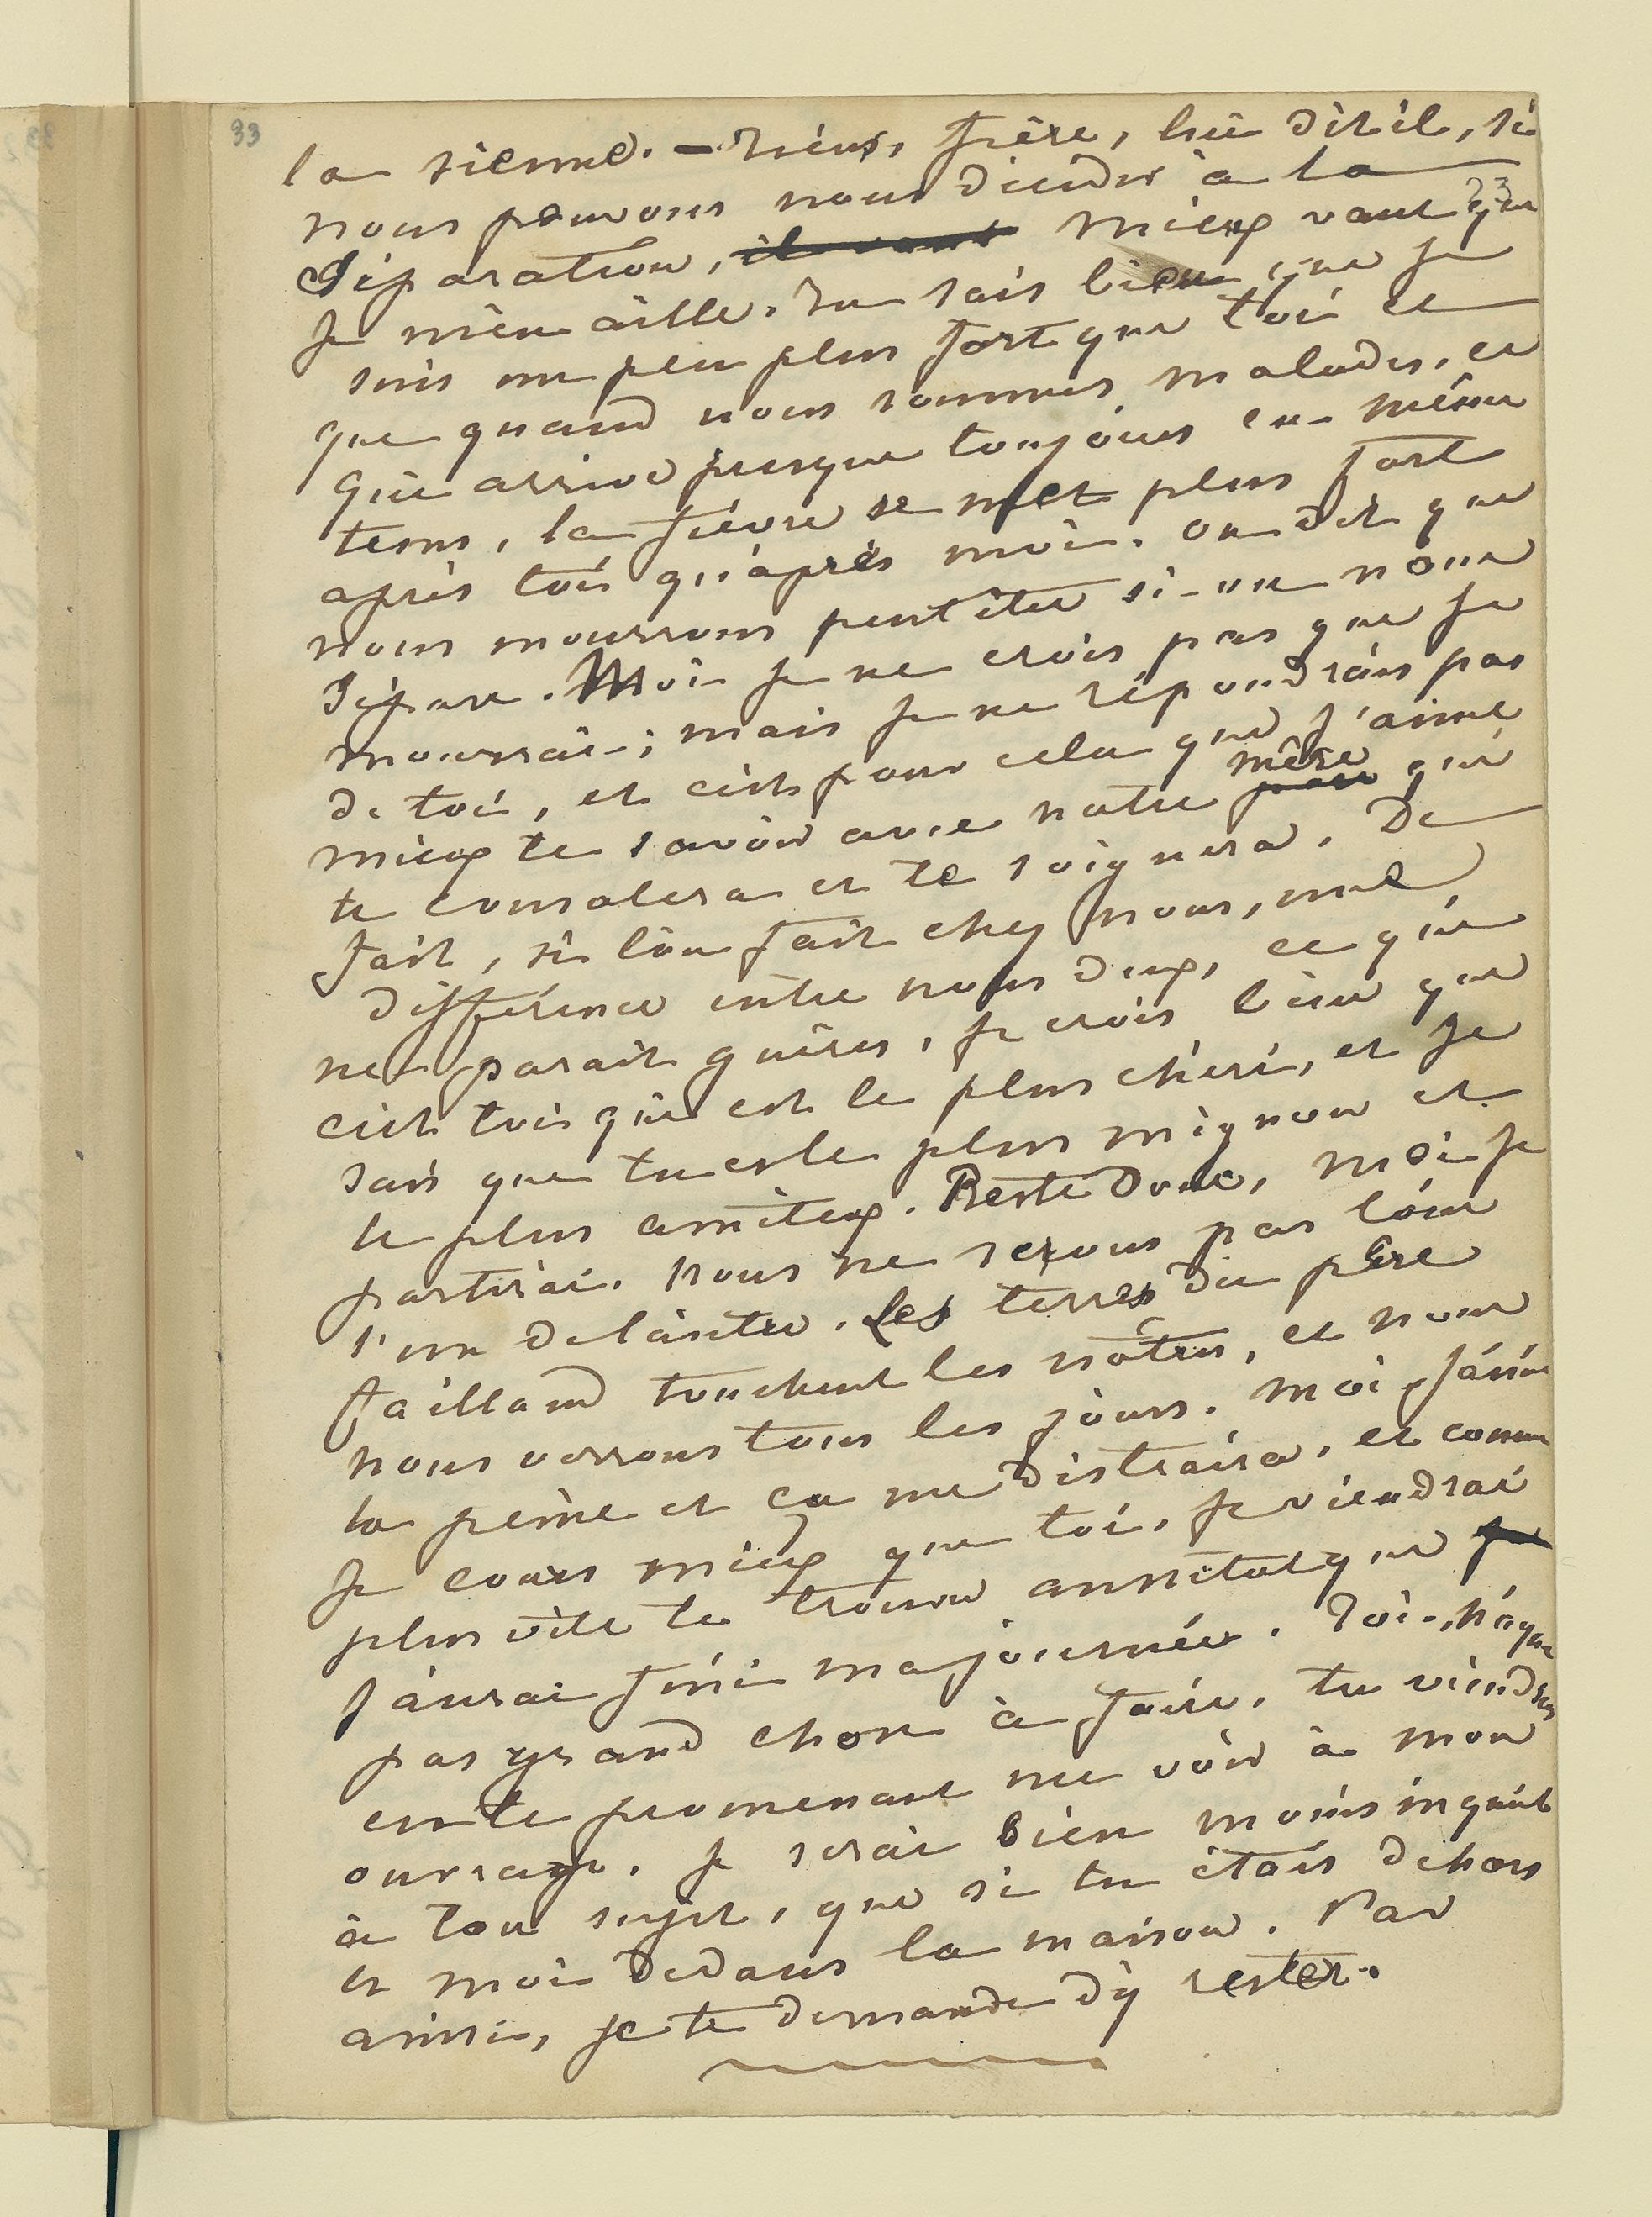 33
la sienne. — Tiens, frère, lui dit-il, si
nous pouvons nous décider à la
23
séparation, il vaut mieux vaut que
je m'en aille. Tu sais bien que je
suis un peu plus fort que toi et
que quand nous sommes malades, ce
qui arrive presque toujours en même
tems, la fièvre se met plus fort
après toi qu'après moi. on dit que
nous mourrons peut être si on nous
sépare. Moi je ne crois pas que je
mourrai ; mais je ne répondrais pas
de toi, et c'est pour cela que j'aime
mieux te savoir avec notre père mère qui
te consolera et te soignera. De
fait, si l'on fait chez nous, une
différence entre nous deux, ce qui
ne parait guères, je crois bien que
c'est toi qui est le plus chéri, et je
sais que tu es le plus mignon et
le plus amiteux. Reste donc, moi je
partirai. nous ne serons pas loin
l'un de l'autre. les terres du père
Caillaud touchent les nôtres, et nous
nous verrons tous les jours. moi j'aime
la peine et ça me distraira, et comme
je cours mieux que toi, je viendrai
plus vite te trouver aussitot que je
j'aurai fini ma journée. Toi, n'ayant
pas grand chose à faire, tu viendras
en te promenant me voir à mon
ouvrage. je serai bien moins inquiet
à ton sujet, que si tu étais dehors
et moi dedans la maison. Par
ainsi, je te demande d'y rester.